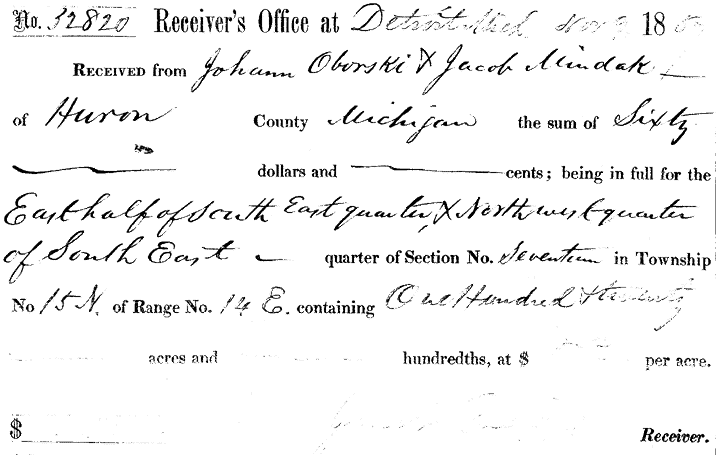 No. 32820 Receiver's Office at Detroit Mich Nov 18
RECEIVED from Johann Oborski & Jacob Mindak
of Huron County Michigan the sum of Sixty
dollars and cents; being in full for the
East half of South East quarter, & North west quarter
of South East quarter of Section No. Seventeen in Township
No 15 N. of Range No. 14 E. containing One Hundred & twenty
acres and hundredths, at $ per acre.
$ Receiver.